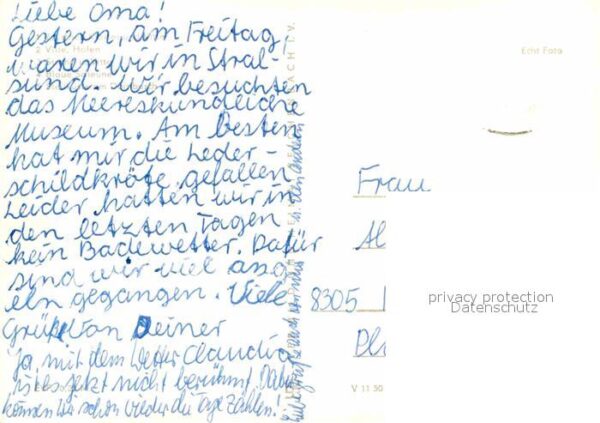 Liebe Oma!
Gestern, am Freitag,
waren wir in Stral-
sund. Wir besuchten
das Meereskundliche
Museum. Am Besten
hat mir die Leder-
schildkröte gefallen
Leider hatten wir in
den letzten Tagen
kein Badewetter. Dafür
sind wir viel
gegangen. Viele
Grüße von Deiner
Claudia
Ja, mit dem Wetter
ist es jetzt nicht berühmt. Dabei
können wir schon wieder die Tage zählen!
2 Vitte, Hafen
Echt Foto
Frau
8305
privacy protection
Datenschutz
V 11 50